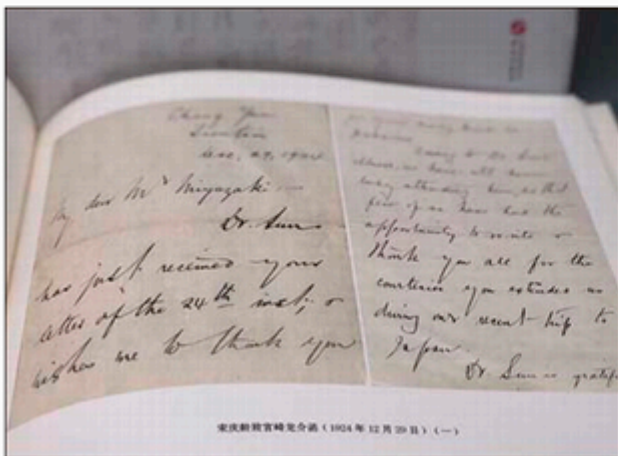 Chang Yuan
Tientsin
Dec. 29, 1924
My dear Mr Miyazaki —
Dr. Sun
has just received your
letter of the 24th inst; &
wishes me to thank you
for your
Owing to Dr. Sun's
illness, we have all been
busy attending him, so that
few of us have had the
opportunity to write &
thank you all for the
courtesies you extended us
during our recent trip to
Japan.
Dr. Sun is
宋庆龄致宫崎龙介函（1924年12月29日）（一）